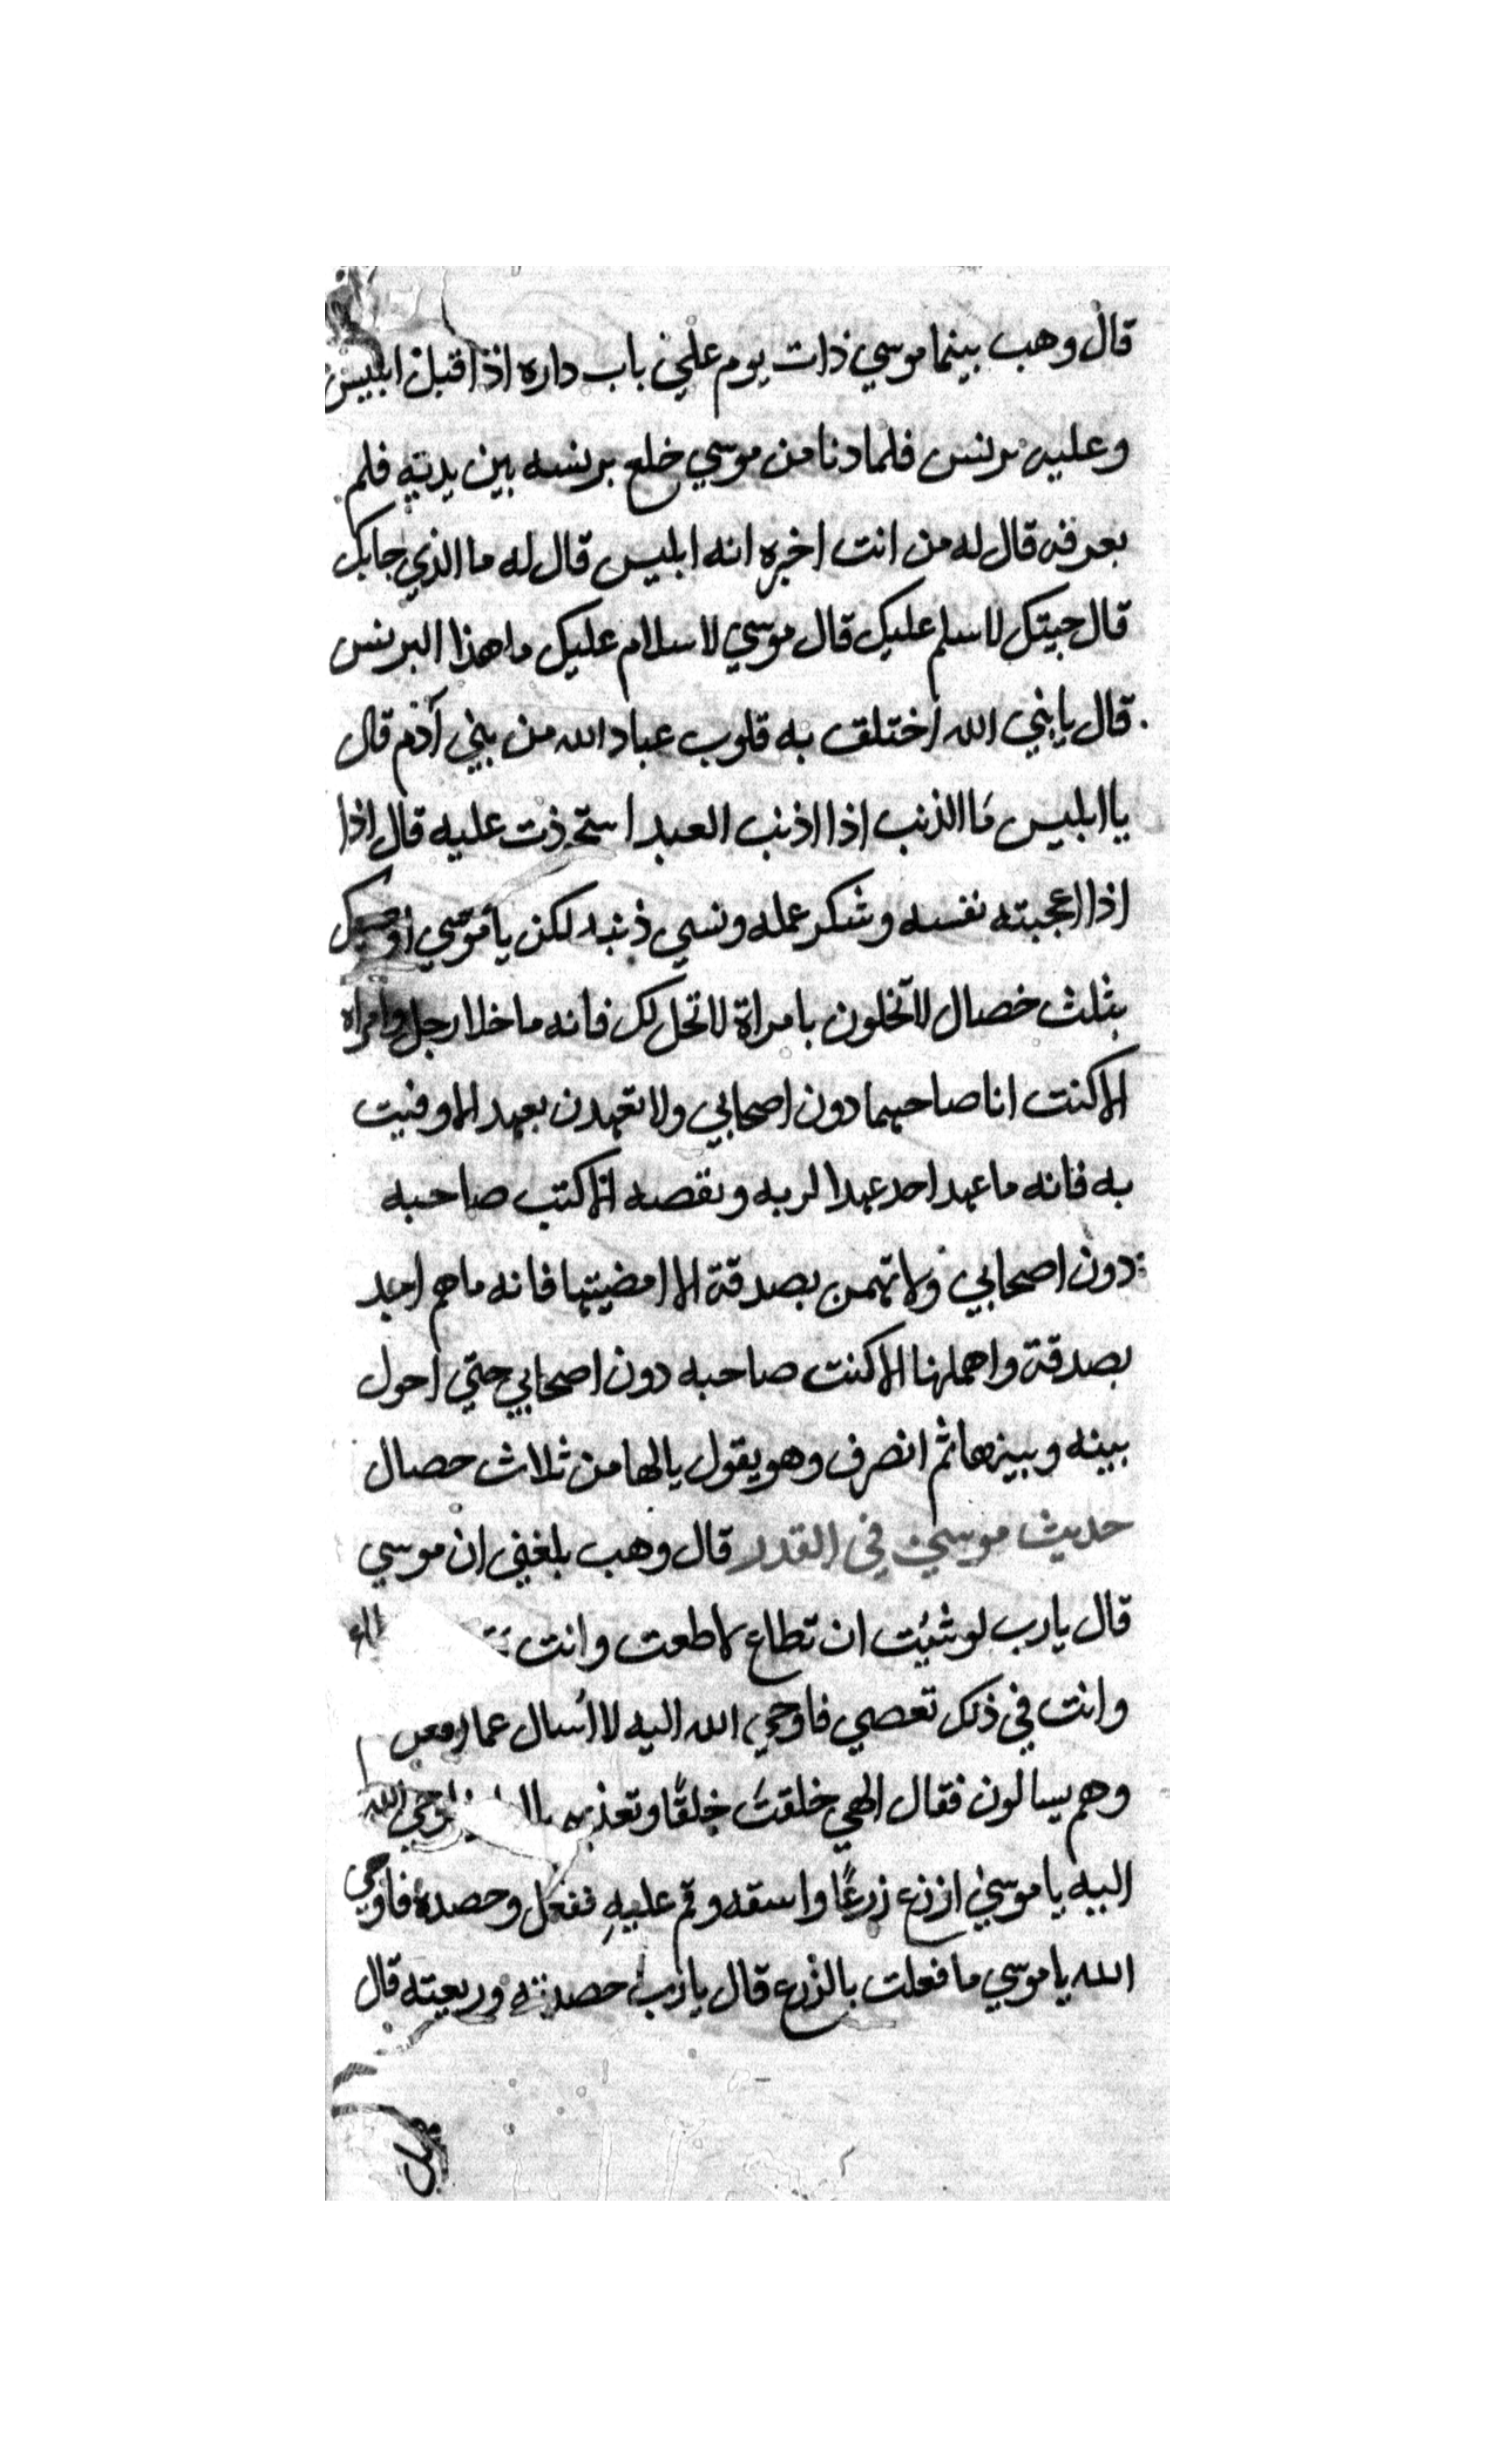 قال وهب بينما موسي ذات يوم علي باب داره اذا اقبل ابليس
وعليه برنس فلما دنا من موسي خلع برنسه بين يديه فلم
يعرفه قال له من انت اخبره انه ابليس قال له ما الذي جابك
قال جيتك لاسلم عليك قال موسي لا سلام عليك ما هذا البرنس
قال يا نبي الله اختلق به قلوب عباد الله من بني آدم قال
يا ابليس ما الذنب اذا اذنب العبد استحوذت عليه قال اذا
اذا اعجبته نفسه وشكر عمله ونسي ذنبه لكن يا موسي
بثلث خصال لا تخلون بامراة لا تحل لك فانه ما خلا رجل وامراه
الا كنت انا صاحبهما دون اصحابي ولا تعهدن بعهد الا وفيت
به فانه ما عهد احد عهدا لربه ونقصه الا كنت صاحبه
دون اصحابي ولا تهمن بصدقة الا امضيتها فانه ما هم احد
بصدقة واهملها الا كنت صاحبه دون اصحابي حتي احول
بينه وبينها ثم انصرف وهو يقول يا لها من ثلاث خصال
حديث موسي في القدر قال وهب بلغني ان موسي
قال يا رب لو شئت ان تطاع لاطعت وانت
وانت في ذلك تعصي فاوحي الله اليه لا اسال عما افعل
وهم يسالون فقال الهي خلقت خلقًا وتعذبهم فاوحي الله
اليه يا موسي ازرع زرعًا واسقه وقم عليه ففعل وحصده فاوحي
الله يا موسي ما فعلت بالزرع قال يا رب حصدته ورفعته قال